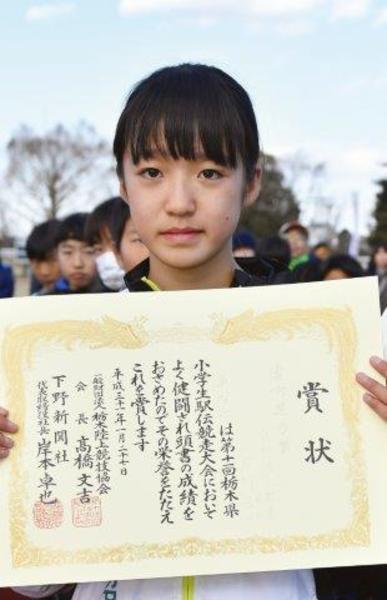 賞状
は第十一回栃木県
小学生駅伝競走大会において
よく健闘され頭書の成績を
おさめたのでその栄誉をたたえ
これを賞します
平成三十一年一月二十七日
一般財団法人栃木陸上競技協会
会長 髙橋文吉
下野新聞社
代表取締役社長 岸本卓也